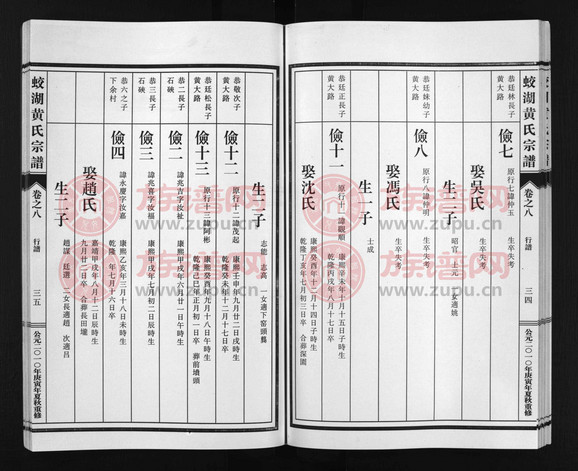 蛟湖黃氏宗譜
卷之八
行譜
三四
公元二〇一〇年庚寅年夏秋重修
恭廷林長子
黃大路
儉七
原行七諱仲玉
生卒失考
娶吳氏
生卒失考
生二子
昭官 士元
一女適姚
恭廷妹幼子
黃大路
儉八
原行八諱仲明
生卒失考
娶馮氏
生卒失考
生一子
士成
恭廷正長子
黃大路
儉十一
原行十一諱觀順
康熙辛未年十月十五日子時生
乾隆丙戌年八月十七日卒
娶沈氏
康熙癸酉年十二月十四日子時生
乾隆丁亥年七月初三日卒 合葬深園
生二子
志能 志高
一女適下窑頭龔
恭敬次子
黃大路
儉十二
原行十二諱茂起
康熙壬申年九月廿二日戌時生
乾隆癸未年十二月十七日卒
恭廷松長子
黃大路
儉十三
原行十三諱阿彬
康熙癸酉年九月十八日午時生
乾隆己巳年正月初一日卒 葬前墳頭
恭二長子
石磢
儉二
諱兆吉字汝祉
康熙甲戌年六月廿一日午時生
恭三長子
石磢
儉三
諱兆喜字汝福
康熙甲戌年七月初二日辰時生
恭六之子
下余村
儉四
諱永慶字汝嘉
康熙乙亥年三月十八日未時生
乾隆 年七月十六日卒
娶趙氏
嘉靖甲戌年八月十二日辰時生
九月廿二日卒 合葬長田壠
生二子
趙謀 廷選
二女長適趙 次適呂
蛟湖黃氏宗譜
卷之八
行譜
三五
公元二〇一〇年庚寅年夏秋重修
族譜网
www.zupu.cn
族譜网
www.zupu.cn